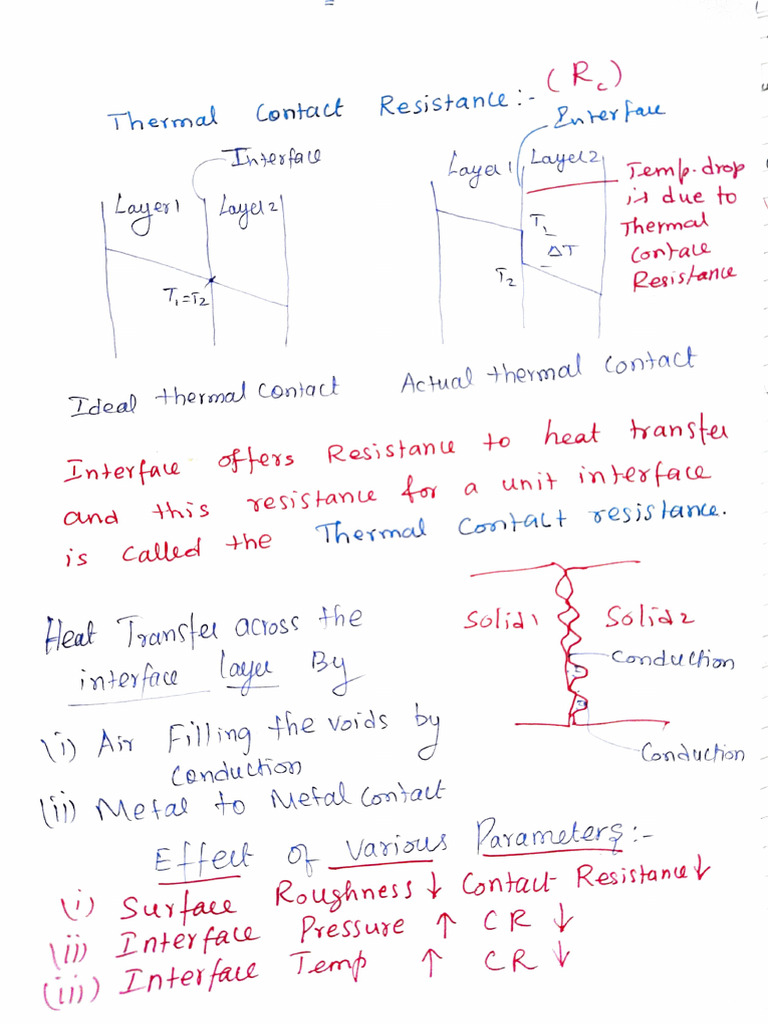 Thermal Contact Resistance:- (Rc)
Interface
Layer 1 Layer 2
T1=T2
Ideal thermal Contact
Enterface
Layer 1 Layer 2
T1
ΔT
T2
Temp. drop
is due to
Thermal
Contace
Resistance
Actual thermal Contact
Interface offers Resistance to heat transfer
and this resistance for a unit interface
is called the Thermal Contact resistance.
Heat Transfer across the
interface layer By
(i) Air Filling the voids by
Conduction
(ii) Metal to Metal Contact
Solid 1 Solid 2
Conduction
Conduction
Effect of Various Parameters:-
(i) Surface Roughness ↓ Contact Resistance ↓
(ii) Interface Pressure ↑ CR ↓
(iii) Interface Temp ↑ CR ↓